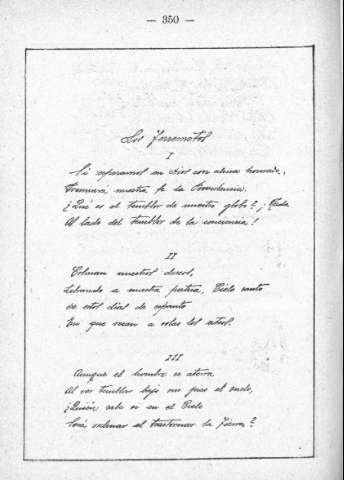 — 350 —
Los Terremotos
I
Si esperamos en Dios con alma honrada,
nuestra fe la Providencia.
¿Qué es el temblor de nuestro globo? ¡Nada
Al lado del temblor de la conciencia!
II
Colman nuestros deseos,
Librando a nuestra patria, Cielo santo
de estos días de espanto
En que rezan a solas los
III
Aunque el hombre se aterra
Al ver temblar bajo sus pies el suelo,
¿Quién sabe si en el Cielo
Será ordenar el trastornar la Tierra?